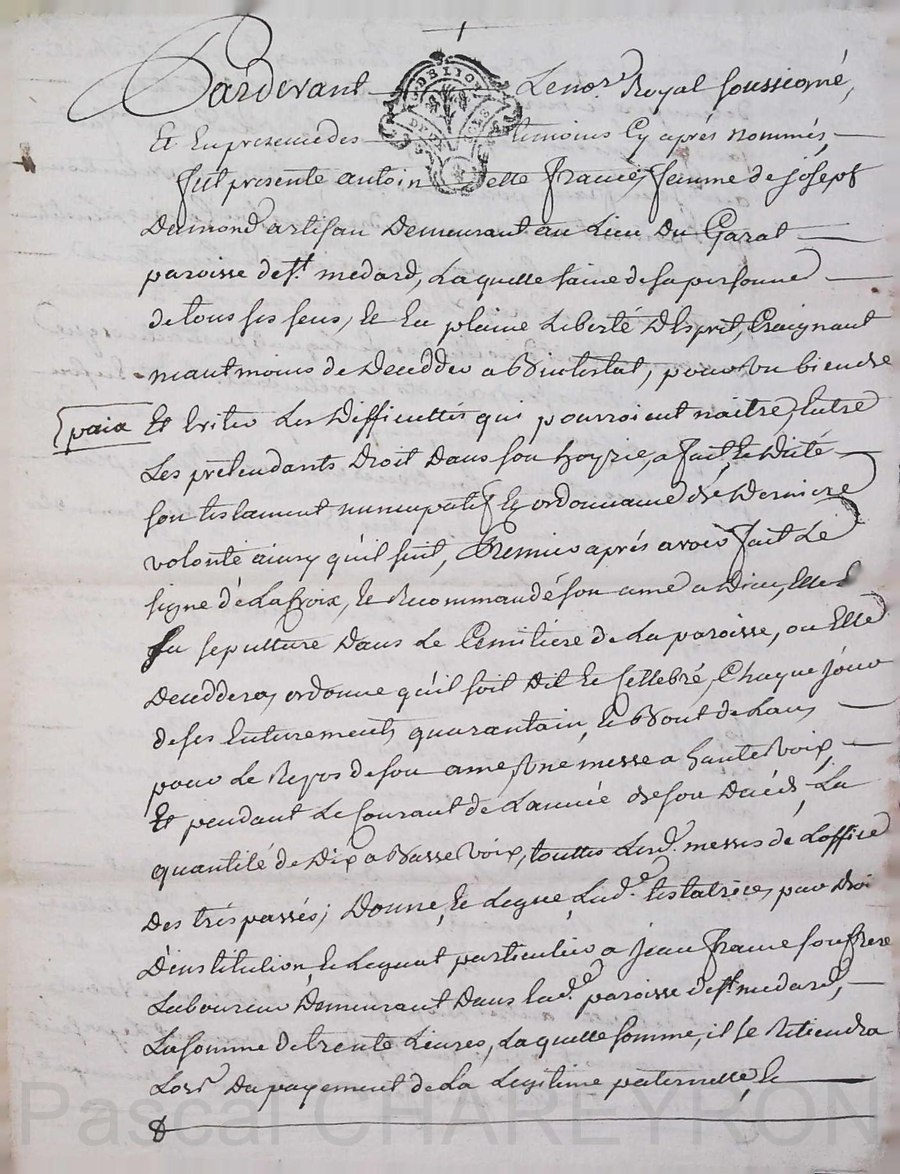 Pardevant Le nore. Royal soussigné,
Et En presence des temoins Cy aprés nommés,
fut presente antoinette france, femme de joseph
Dumond artisan Demeurant au Lieu Du Garat
paroisse de st. medard, Laquelle saine de sa personne
de tous ses sens, Et En plaine Liberté D'Esprit, Craignant
neautmoins de Decedder abintestat, pour ou bien de
paix Et Eviter Les Difficultés qui pourroient naitre Entre
Les prétendants Droit Dans son hoyrie, a fait, Et Dicté
son testament nuncupatif Et ordonnance de Derniere
volonté ainsy qu'il suit, Premier aprés avoir fait Le
signe de La Croix, Et Recommandé son ame a Dieu, Elle
sa sepulture Dans Le Cemitiére de La paroisse, ou Elle
Deceddera, ordonne qu'il soit Dit Et sellebré, Chaque jour
de ses Enterrement, quarantain, Et Bout de Lan,
pour Le Repos de son ame, une messe a haute voix,
Et pendant Le Courant de L'année de son Décés, La
quantité de Dix a Basse voix, touttes Lesd. messes de L'office
Des tréspassés; Donne, Et Legue, Lade. testatrice, par Droit
D'institution, Et Leguat particulier a jean france son frere
Laboureur Demeurant Dans Lade. paroisse de st. medard,
La somme de trente Livres, Laquelle somme, il se Retiendra
Lors Du payement de La Legitime paternelle, Et
Pascal CHAREYRON